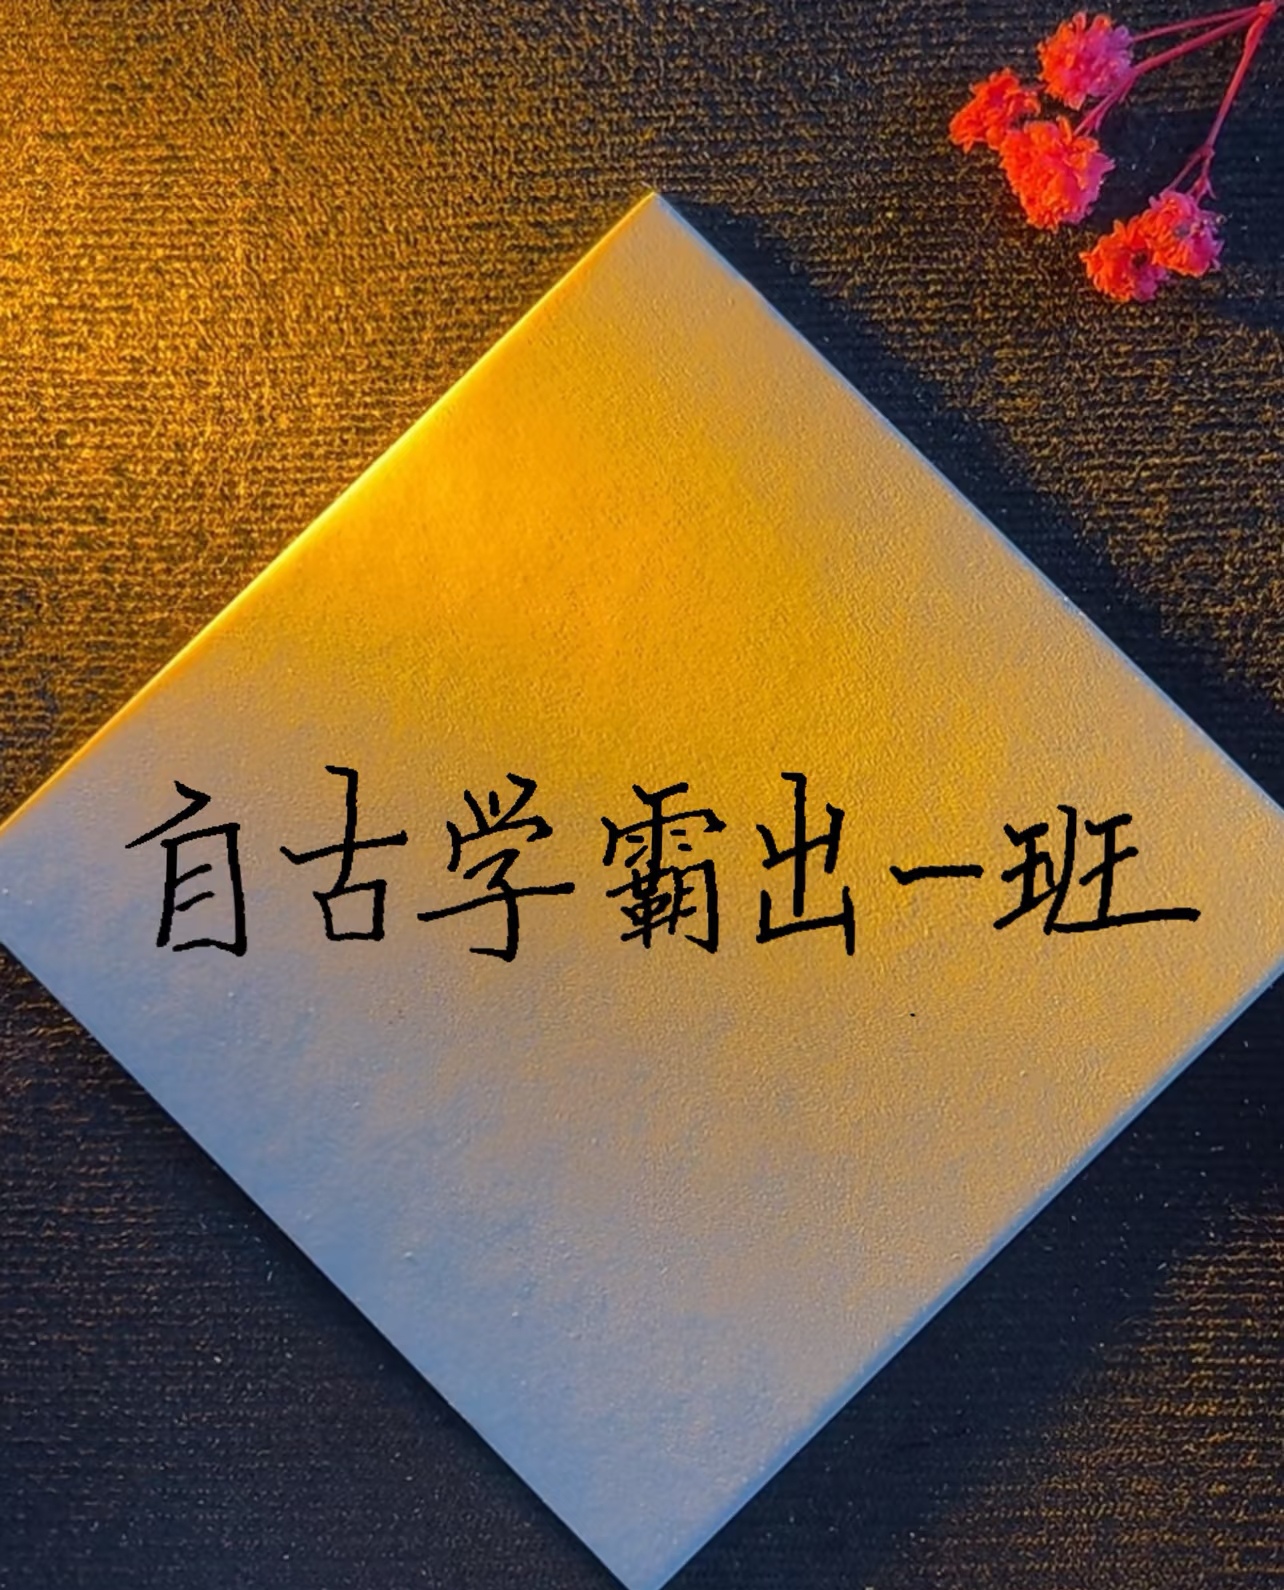 自古学霸出一班